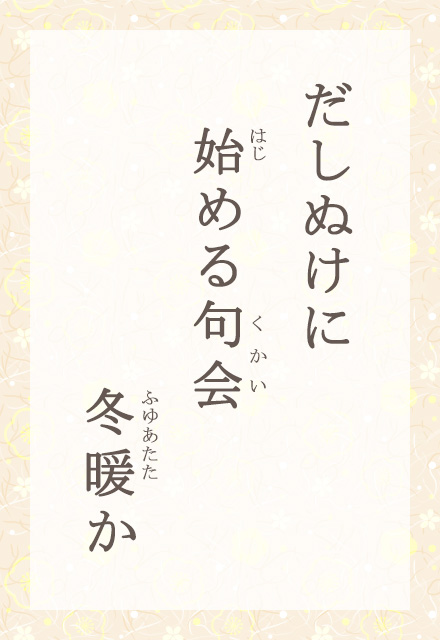 だしぬけに
始める句会
はじ
くかい
冬暖か
ふゆあたた